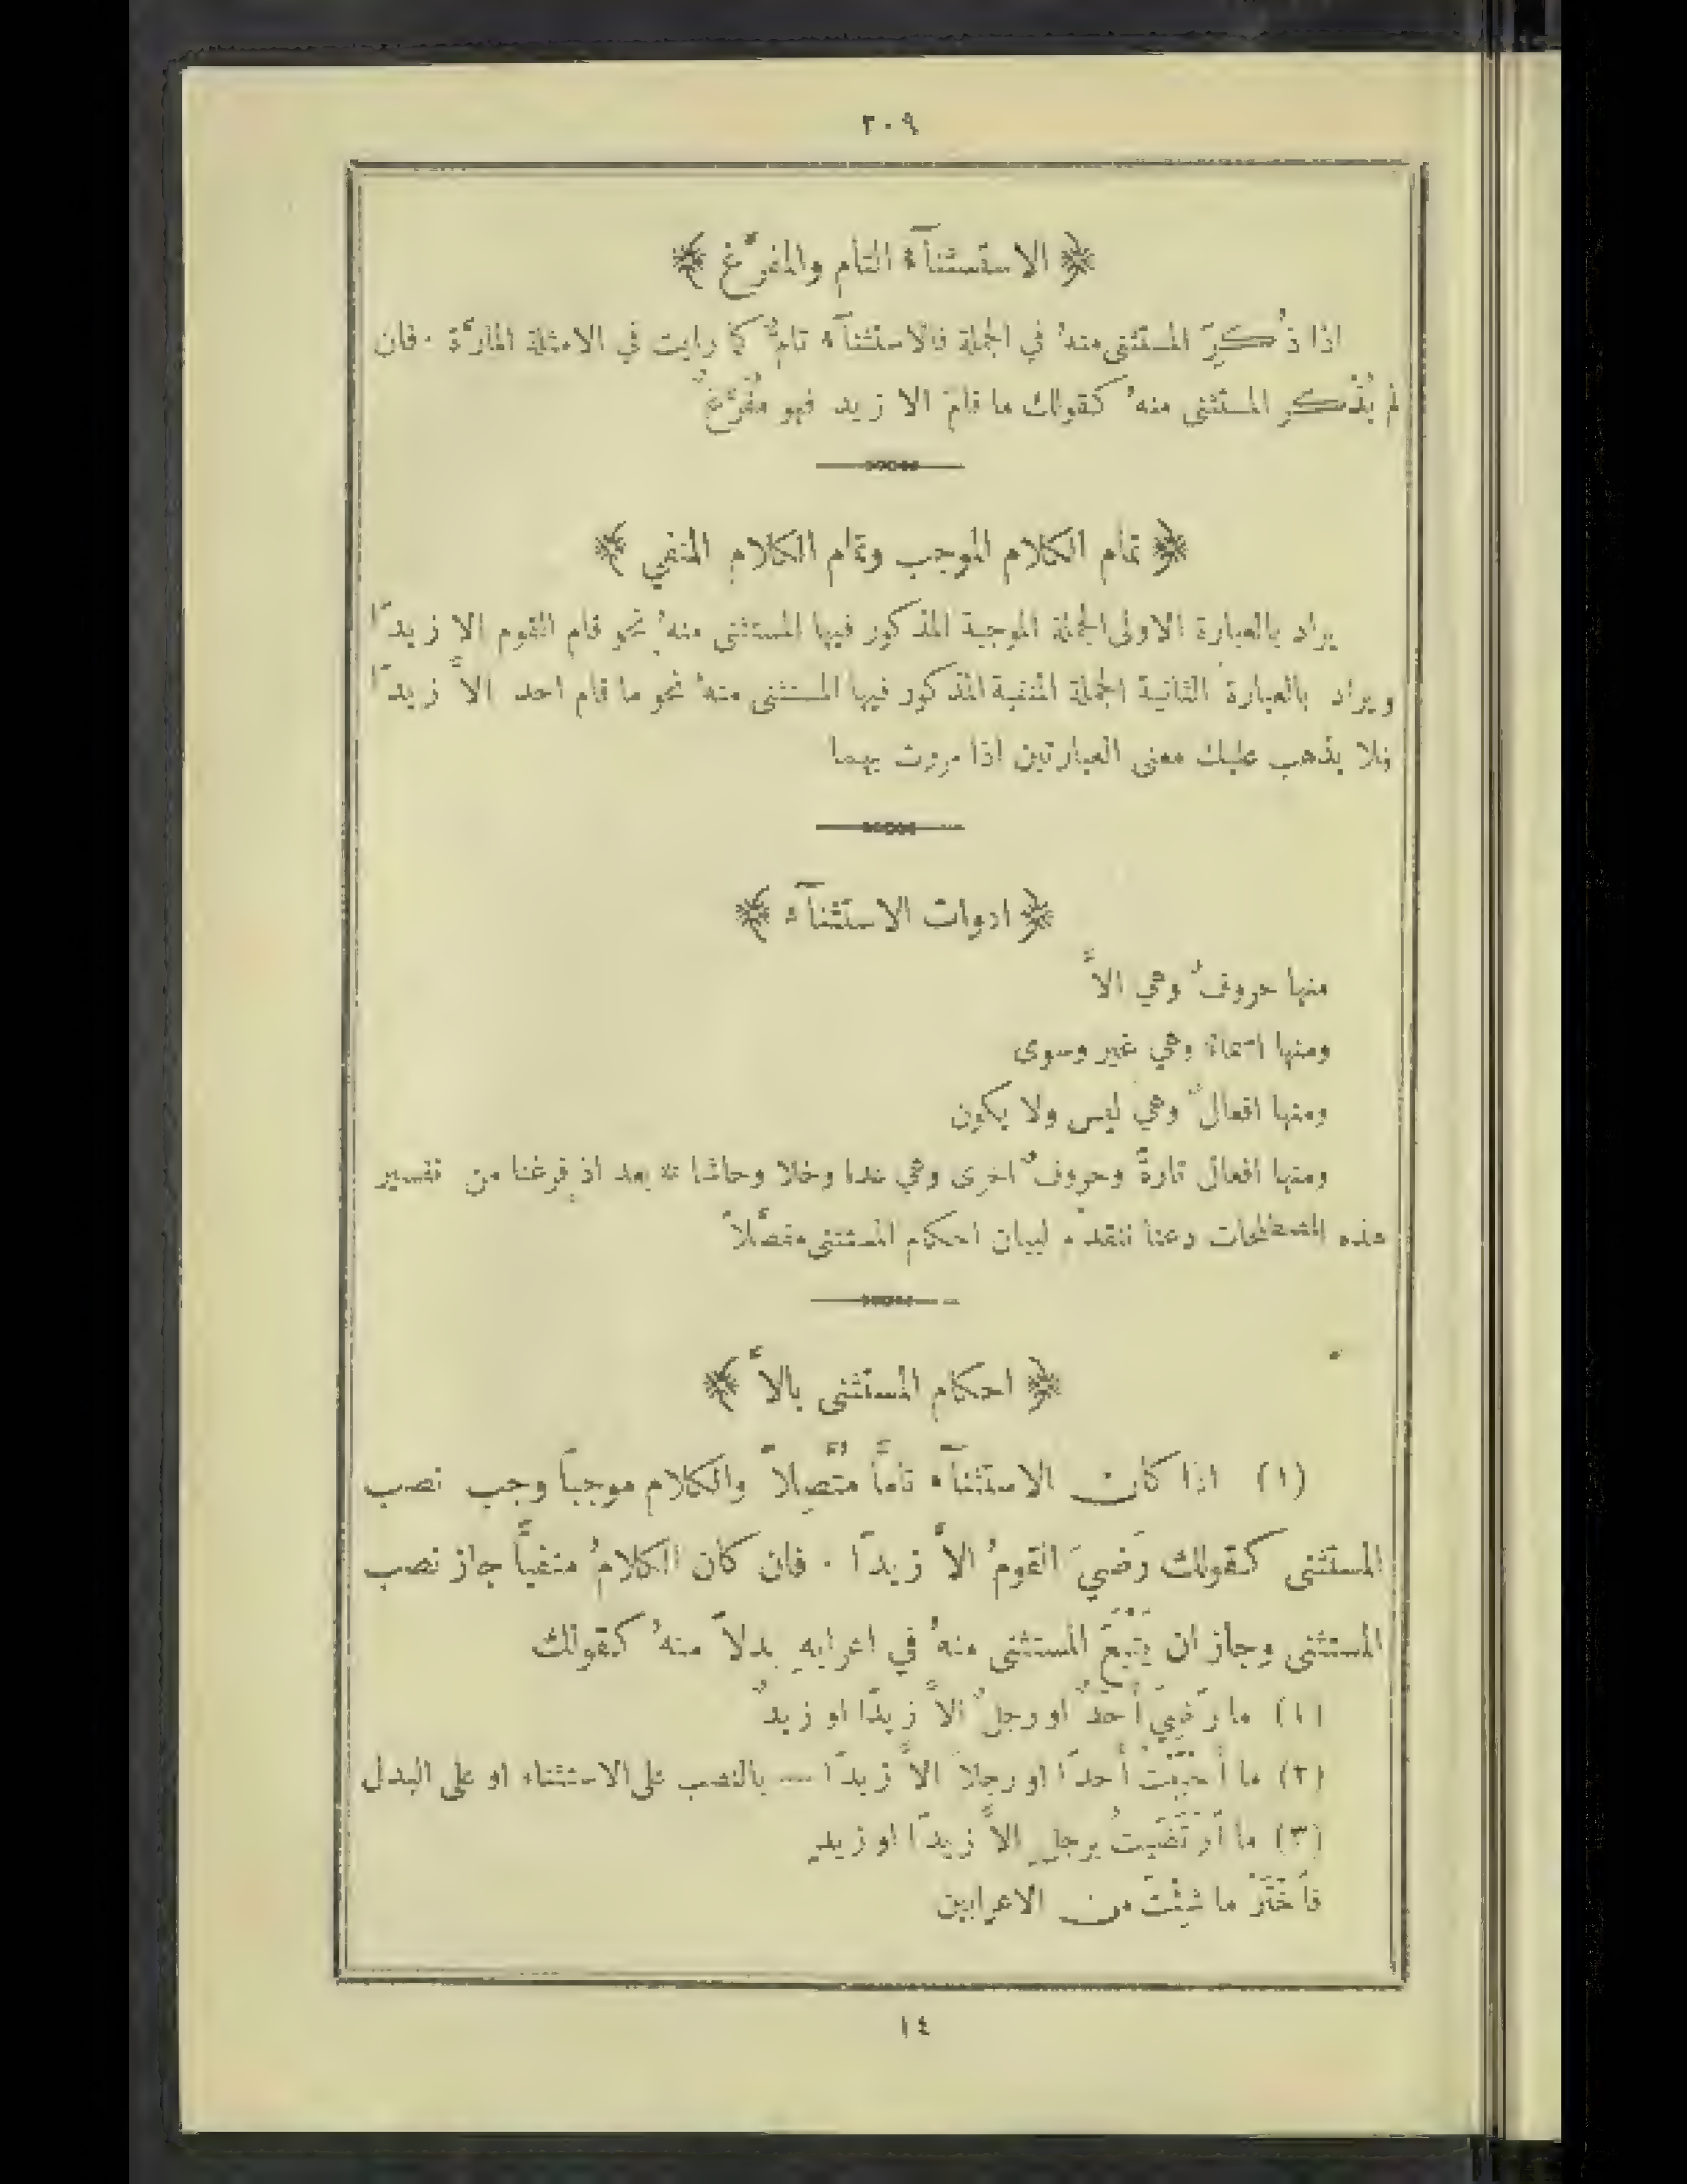 ٢٠٩
﴿ الاستثنآء التام والمفرَّغ ﴾
اذا ذُكِرَ المستثنى منهُ في الجملة فالاستثنآء تامٌّ كما رايت في الامثلة المارَّة ۰ فان
لم يُذْكر المستثنى منهُ كقولك ما قامَ الا زيد فهو مُفَرَّغٌ
﴿ تمام الكلام الموجب وتمام الكلام المنفي ﴾
يراد بالعبارة الاولى الجملة الموجبة المذكور فيها المستثنى منهُ نحو قام القوم الا زيدًا
ويراد بالعبارة الثانية الجملة المنفية المذكور فيها المستثنى منهُ نحو ما قام احد الاَّ زيدًا
فلا يذهب عليك معنى العبارتين اذا مررت بهما
﴿ ادوات الاستثنآء ﴾
منها حروفٌ وهي الاَّ
ومنها اسمآء وهي غير وسوى
ومنها افعالٌ وهي ليس ولا يكون
ومنها افعال تارةً وحروفٌ اخرى وهي عدا وخلا وحاشا * بعد اذ فرغنا من تفسير
هذه المصطلحات دعنا نتقدَّم لبيان احكام المستثنى مفصَّلاً
﴿ احكام المستثنى بالاَّ ﴾
(١) اذا كان الاستثنآء تامًّا مُتَّصِلاً والكلام موجبًا وجب نصب
المستثنى كقولك رَضيَ القومُ الاَّ زيدًا ۰ فان كان الكلامُ منفيًّا جاز نصب
المستثنى وجاز ان يَتْبَعَ المستثنى منهُ في اعرابهِ بدلاً منهُ كقولك
(١) ما رَضِيَ أَحَدٌ او رجلٌ الاَّ زيدًا او زيدٌ
(٢) ما أَحبَبْتُ أَحدًا او رجلاً الاَّ زيدًا — بالنصب على الاستثناء او على البدل
(٣) ما اَرْتَضَيتُ برجلٍ الاَّ زيدًا او زيدٍ
فاَخْتَرْ ما شِئْتَ من الاعرابين
١٤